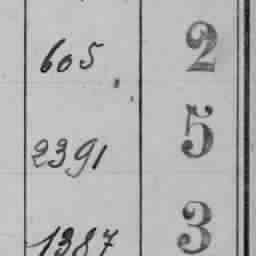 605 2
2391 5
1387 3